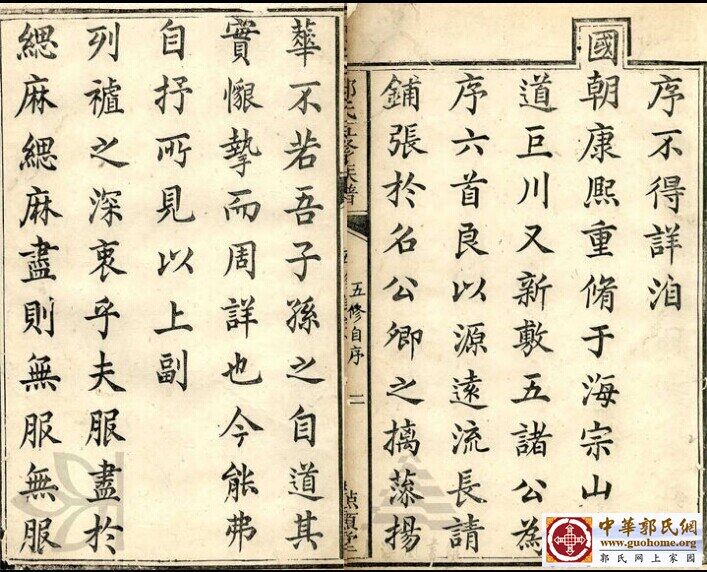 序不得詳洎
國朝康熙重脩于海宗山
道巨川又新敷五諸公為
序六首良以源遠流長請
鋪張於名公卿之摛藻揚
五修自序
二
華不若吾子孫之自道其
實懇摯而周詳也今能弗
自抒所見以上副
列禇之深衷乎夫服盡於
緦麻緦麻盡則無服無服
中華郭氏網
www.guohome.org
郭氏网上家园